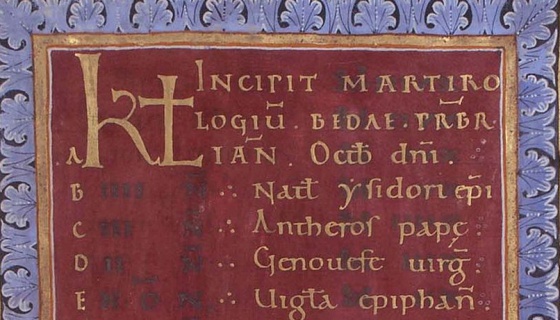 KL INCIPIT MARTIRO
LOGIŪ. BEDAE. PRB̄R.
A IAN̄. Octƀ dn̄i
B ∴ Natł ysidori ep̄i
C ∴ Antheros papę:
D ∴ Genouefe uirḡ:
E ∴ Uigła epiphan̄: